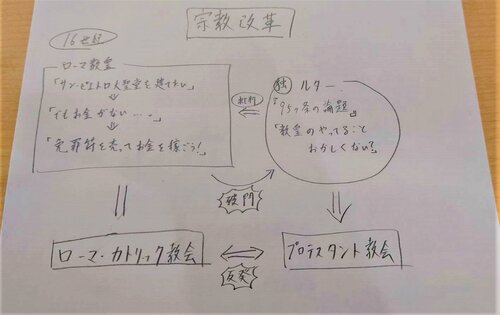 宗教改革
16世紀
ローマ教皇
「サン・ピエトロ大聖堂を建てたい」
⇓
「でもお金がない…。」
⇓
「免罪符を売ってお金を稼ごう!」
批判
⇐
独 ルター
「95ヶ条の論題」
「教皇のやってること
おかしくない?」
破門
ローマ・カトリック教会
⇔
反発
プロテスタント教会